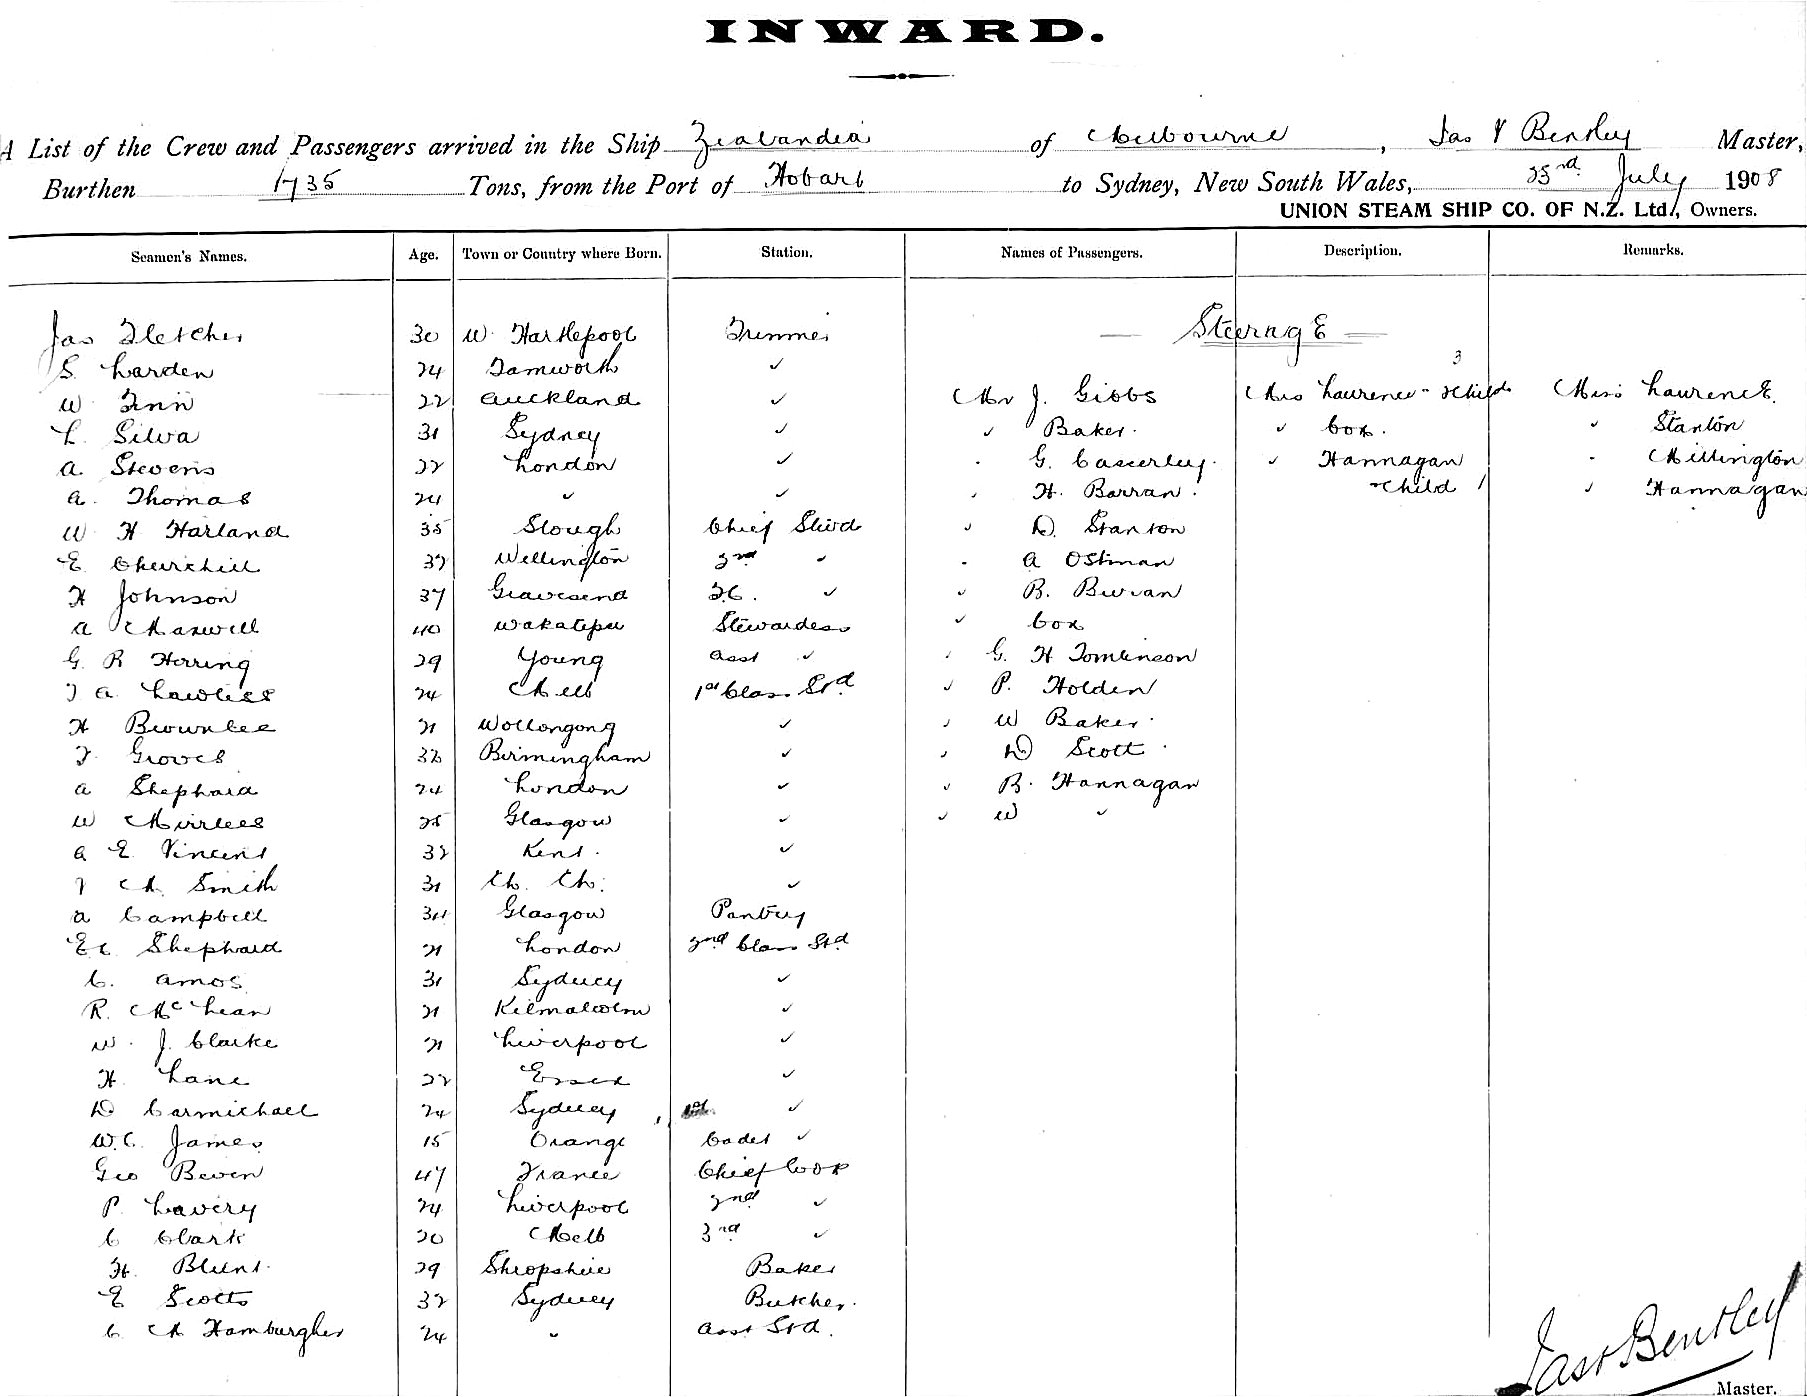 INWARD.
A List of the Crew and Passengers arrived in the Ship Zealandia of Melbourne, Jas Bentley Master,
Burthen 1735 Tons, from the Port of Hobart to Sydney, New South Wales, 23rd July 1908
UNION STEAM SHIP CO. OF N.Z. Ltd., Owners.
Seamen's Names. Age. Town or Country where Born. Station. Names of Passengers. Description. Remarks.
Jas Fletcher 30 W. Hartlepool Trimmer — Steerage —
S. Larden 24 Tamworth " 3
W Finn 22 Auckland " Mr J. Gibbs Mrs Laurence + Child Miss Laurence
L. Silva 31 Sydney " " Baker. " Cox. " Stanton
A Stevens 22 London " " G. Casserley. " Hannagan " Millington
A. Thomas 24 " " " H. Barran. + child 1 " Hannagan
W H Harland 35 Slough Chief Stwd " D. Stanton
E Churchill 32 Wellington 2nd " " A Ostman
H Johnson 37 Gravesend F.C. " " B.
A Maxwell 40 Wakatipu Stewardess " Cox
G. R Herring 29 Young Asst " " G. H Tomlinson
J A. Lawless 24 Melb 1st Class Std " P. Holden
H Brownlee 21 Wollongong " " W Baker.
F. Groves 32 Birmingham " " D Scott.
A Shephard 24 London " " B. Hannagan
W Mirrlees 25 Glasgow " " W "
A E. Vincent 32 Kent. "
M. Smith 31 Ch. Ch. "
A Campbell 34 Glasgow Pantry
Shephard 21 London 2nd Class Std
C. Amos 31 Sydney "
R. McLean 21 Kilmalcolm "
W. J. Clarke 21 Liverpool "
H. Lane 22 Essex "
D Carmichael 24 Sydney 1st "
W.C. James 15 Orange Cadet "
Geo Beven 47 France Chief Cook
P. Lavery 24 Liverpool 2nd "
C Clark 20 Melb 3rd "
H. Blunt. 29 Shropshire Baker
E Scotts 32 Sydney Butcher.
C M Hamburgher 24 " Asst Std.
Jas Bentley
Master.